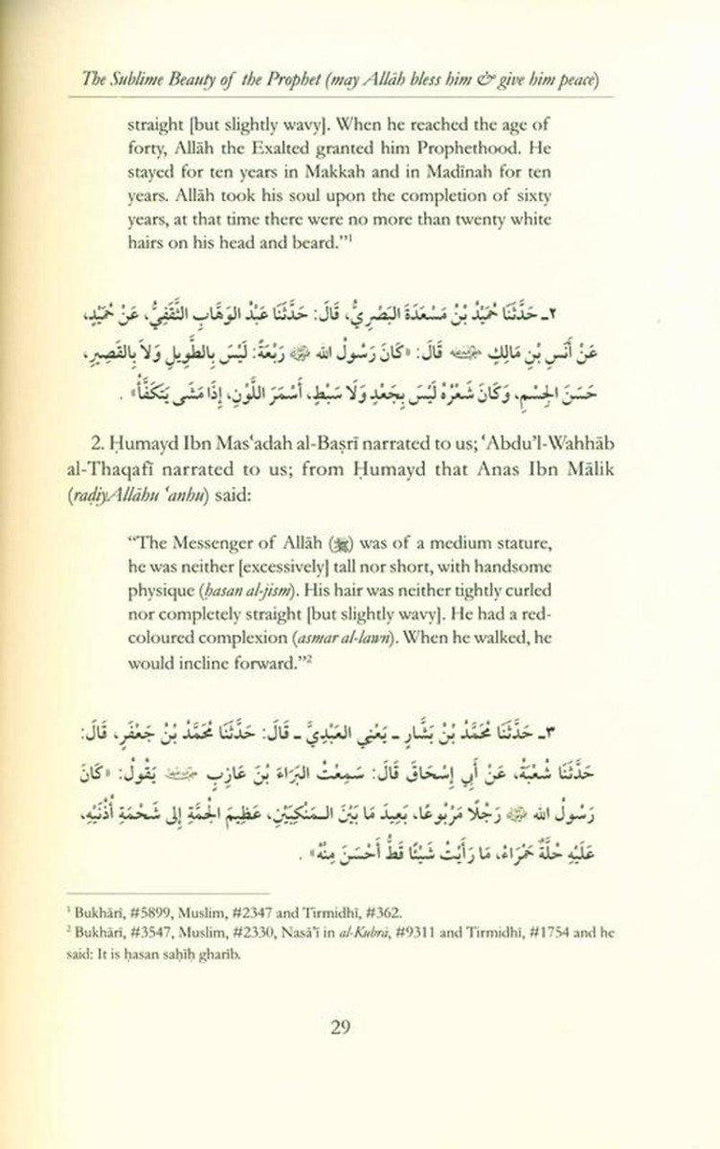 The Sublime Beauty of the Prophet (may Allāh bless him & give him peace)
straight [but slightly wavy]. When he reached the age of
forty, Allāh the Exalted granted him Prophethood. He
stayed for ten years in Makkah and in Madīnah for ten
years. Allāh took his soul upon the completion of sixty
years, at that time there were no more than twenty white
hairs on his head and beard.”¹
٢ـ حَدَّثَنَا حُمَيْدُ بْنُ مَسْعَدَةَ البَصْرِيُّ، قَالَ: حَدَّثَنَا عَبْدُ الوَهَّابِ الثَّقَفِيُّ، عَنْ حُمَيْدٍ،
عَنْ أَنَسِ بْنِ مَالِكٍ رضي الله عنه قَالَ: «كَانَ رَسُولُ الله ﷺ رَبْعَةً: لَيْسَ بِالطَّوِيلِ وَلاَ بِالقَصِيرِ،
حَسَنَ الجِسْمِ، وَكَانَ شَعْرُهُ لَيْسَ بِجَعْدٍ وَلَا سَبْطٍ، أَسْمَرَ اللَّوْنِ، إِذَا مَشَى يَتَكَفَّأُ» .
2. Ḥumayd Ibn Mas‘adah al-Baṣrī narrated to us; ‘Abdu’l-Wahhāb
al-Thaqafī narrated to us; from Ḥumayd that Anas Ibn Mālik
(raḍiyAllāhu ‘anhu) said:
“The Messenger of Allāh (ﷺ) was of a medium stature,
he was neither [excessively] tall nor short, with handsome
physique (ḥasan al-jism). His hair was neither tightly curled
nor completely straight [but slightly wavy]. He had a red-
coloured complexion (asmar al-lawn). When he walked, he
would incline forward.”²
٣ـ حَدَّثَنَا مُحَمَّدُ بْنُ بَشَّارٍ ـ يَعْنِي العَبْدِيَّ ـ قَالَ: حَدَّثَنَا مُحَمَّدُ بْنُ جَعْفَرٍ، قَالَ:
حَدَّثَنَا شُعْبَةُ، عَنْ أَبِي إِسْحَاقَ قَالَ: سَمِعْتُ البَرَاءَ بْنَ عَازِبٍ رضي الله عنه يَقُولُ: «كَانَ
رَسُولُ الله ﷺ رَجُلًا مَرْبُوعًا، بَعِيدَ مَا بَيْنَ الـمَنْكِبَيْنِ، عَظِيمَ الجُمَّةِ إِلى شَحْمَةِ أُذُنَيْهِ،
عَلَيْهِ حُلَّةٌ حَمْرَاءُ، مَا رَأَيْتُ شَيْئًا قَطُّ أَحْسَنَ مِنْهُ» .
¹ Bukhārī, #5899, Muslim, #2347 and Tirmidhī, #362.
² Bukhārī, #3547, Muslim, #2330, Nasā’ī in al-Kubrā, #9311 and Tirmidhī, #1754 and he
said: It is ḥasan saḥīḥ gharīb.
29